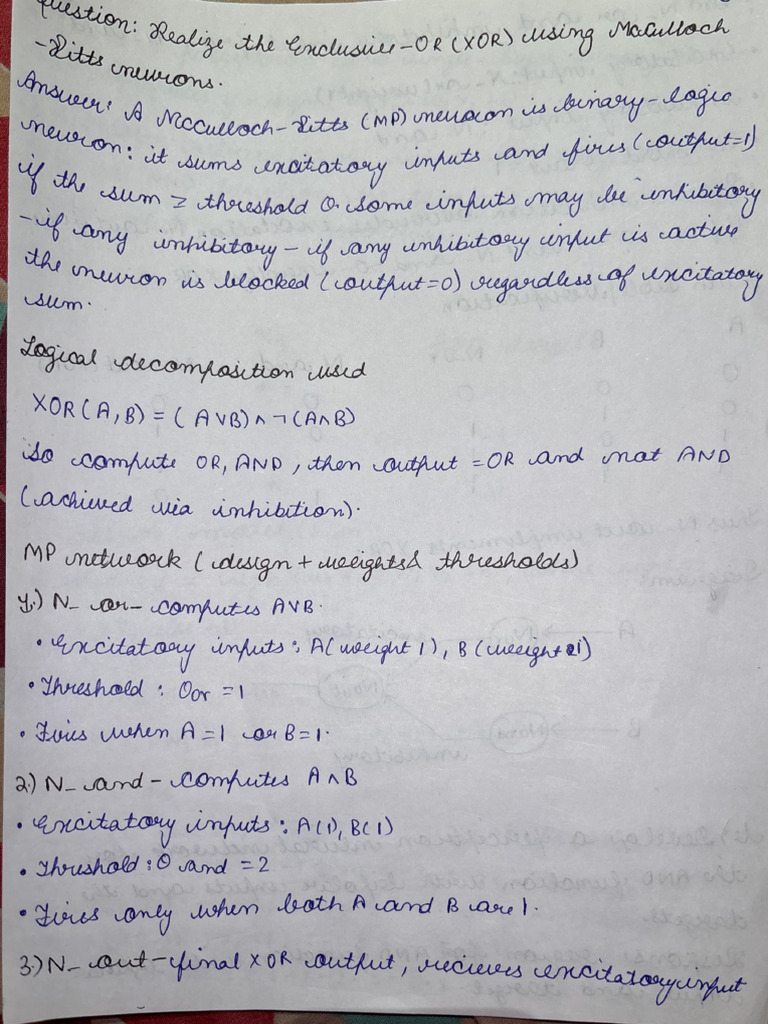 Question: Realize the Exclusive-OR (XOR) using McCulloch
-Pitts neurons.
Answer: A McCulloch-Pitts (MP) neuron is binary-logic
neuron: it sums excitatory inputs and fires (output=1)
if the sum ≥ threshold θ. Some inputs may be inhibitory
-if any inhibitory - if any inhibitory input is active
the neuron is blocked (output=0) regardless of excitatory
sum.
Logical decomposition used
XOR(A,B) = (A∨B)∧¬(A∧B)
So compute OR, AND, then output = OR and not AND
(achieved via inhibition).
MP network (design + weights & thresholds)
1.) N- or- computes A∨B.
• Excitatory inputs: A(weight 1), B(weight 1)
• Threshold: θor = 1
• Fires when A=1 or B=1.
2.) N- and- computes A∧B
• Excitatory inputs: A(1), B(1)
• Threshold: θ and = 2
• Fires only when both A and B are 1.
3.) N- out- final XOR output, recieves excitatory input